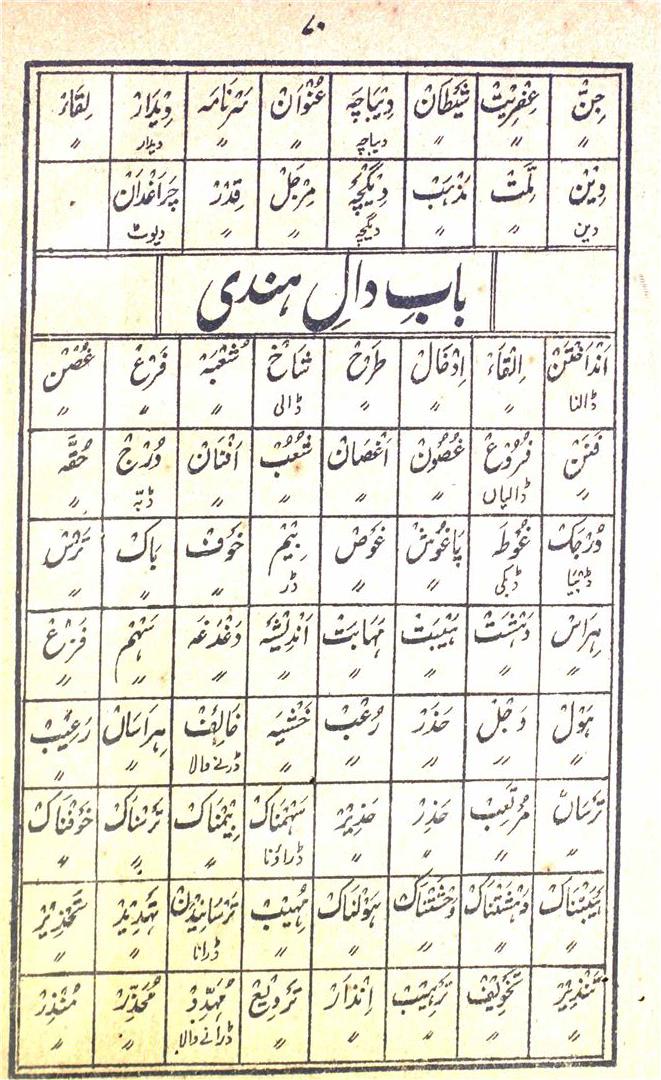 ۷۰
جِنّ عِفْرِیْت شَیْطَان دِیْبَاچَہ عُنْوَان سَرْنَامَہ دِیْدَار لِقَاءْ
〃 〃 〃 دیباچہ 〃 〃 دیدار 〃
دِیْن مِلَّت مَذْہَب دِیْگْچَہ مِرْجَلْ قِدْرْ چَرَاغْدَان
دین 〃 〃 دیگچہ 〃 〃 دیوٹ
بابِ دالِ ہندی
اَنْدَاخْتَنْ اِلْقَاءْ اِدْخَالْ طَرْح شَاخْ شُعْبَہْ فَرْعْ غُصْنْ
ڈالنا 〃 〃 〃 ڈالی 〃 〃 〃
فَنَنْ فُرُوْعْ غُصُوْن اَغْصَان شُعُبْ اَفْنَان دُرْجْ حُقَّہ
〃 ڈالیاں 〃 〃 〃 〃 ڈبّہ 〃
دُرْجَکْ غُوْطَہ پَاغُوْشْ غَوْصْ بِیْم خَوْف بَاکْ تَرْسْ
ڈبیا ڈبکی 〃 〃 ڈر 〃 〃 〃
ہِرَاسْ دَہْشَتْ ہَیْبَتْ مَہَابَتْ اَنْدِیْشَہ دَغْدَغَہ سَہْم فَزَعْ
〃 〃 〃 〃 〃 〃 〃 〃
ہَوْلْ وَجَلْ حَذَرْ رُعْبْ خَشْیَہْ خَائِفْ ہِرَاسَان رَعِیْبْ
〃 〃 〃 〃 〃 ڈرنے والا 〃 〃
تَرْسَاں مُرْتَعِبْ حَذِرْ حَذِیْرْ سَہْمْنَاکْ بِیْمْنَاکْ تَرْسْنَاکْ خَوْفْنَاکْ
〃 〃 〃 〃 ڈراؤنا 〃 〃 〃
ہَیْبَتْنَاکْ دَہْشَتْنَاکْ وَحْشَتْنَاکْ ہَوْلْنَاکْ مُہِیْبْ تَرْسَانِیْدَنْ تَہْدِیْدْ تَحْذِیْرْ
〃 〃 〃 〃 〃 ڈرانا 〃 〃
تَنْذِیْرْ تَخْوِیْفْ تَرْہِیْبْ اِنْذَارْ تَرْوِیْعْ مُہَدِّدْ مُحَذِّرْ مُنْذِرْ
〃 〃 〃 〃 〃 ڈرانے والا 〃 〃